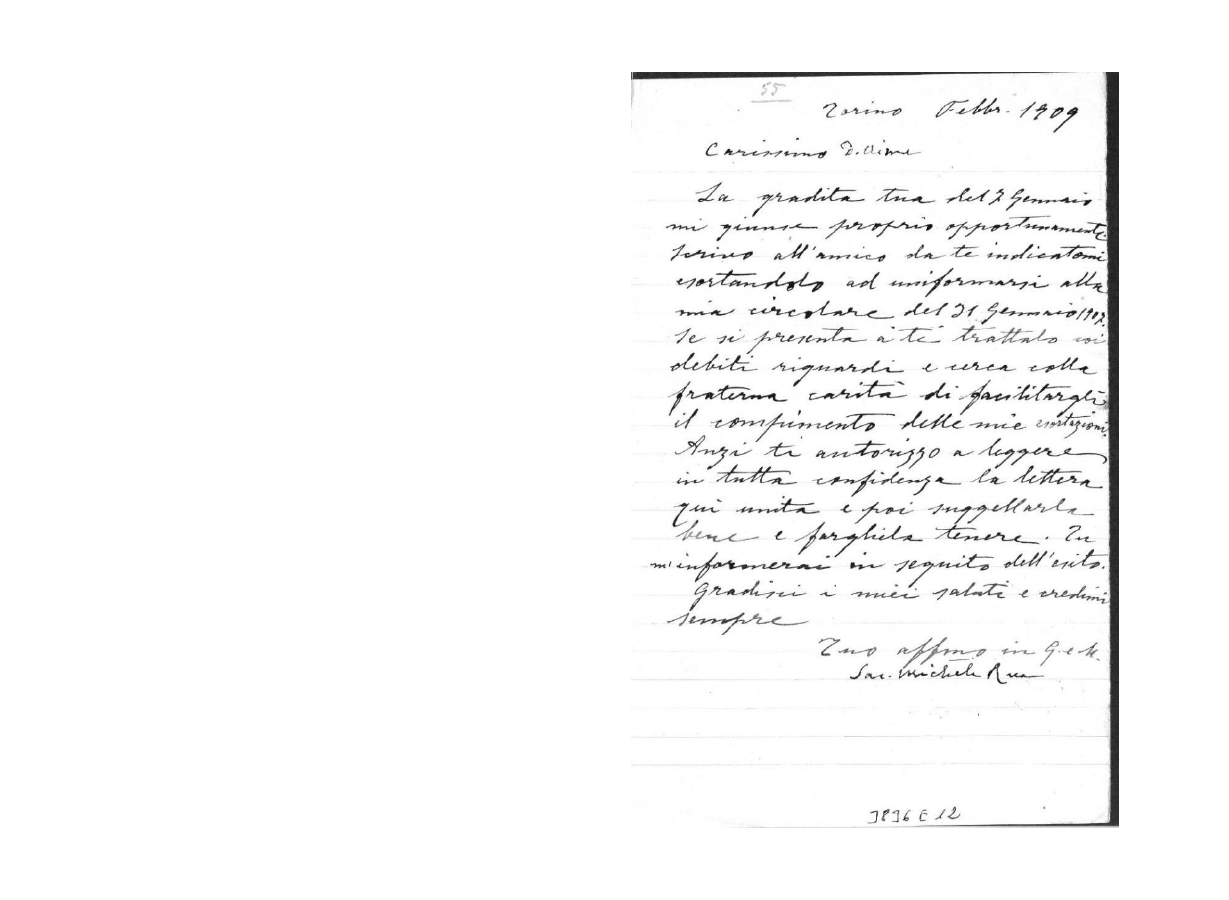 55
Torino Febbr. 1909
Carissimo D. Aime
La gradita tua del 7 Gennaio
mi giunse proprio opportunamente.
Scrivo all'amico da te indicatomi
esortandolo ad uniformarsi alla
mia circolare del 31 Gennaio 1907.
Se si presenta a te trattalo coi
debiti riguardi e cerca colla
fraterna carità di facilitargli
il compimento delle mie esortazioni.
Anzi ti autorizzo a leggere
in tutta confidenza la lettera
qui unita e poi suggellarla
bene e farghela tenere. Tu
m'informerai in seguito dell'esito.
Gradisci i miei saluti e credimi
sempre
Tuo affmo in G. e M.
Sac. Michele Rua
3836 E 12